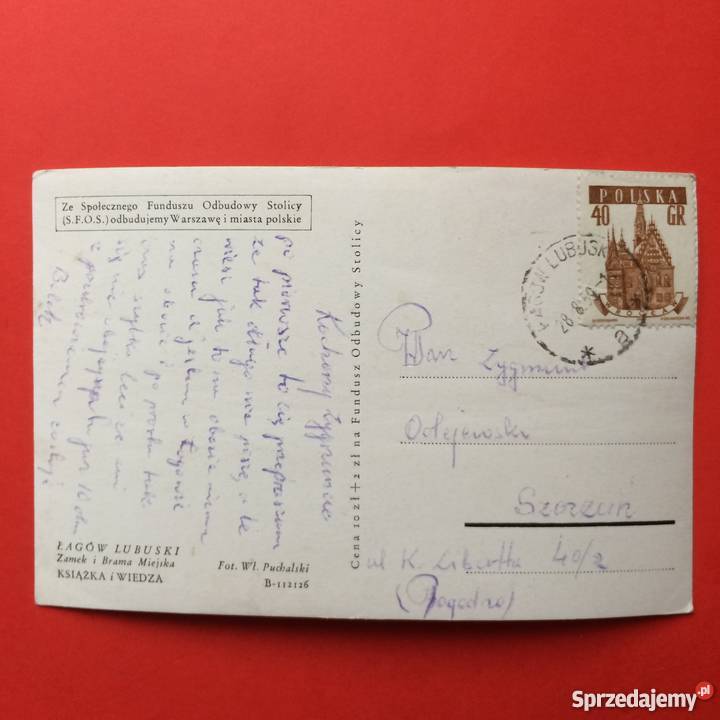 Ze Społecznego Funduszu Odbudowy Stolicy
(S.F.O.S.) odbudujemy Warszawę i miasta polskie
Kochany Zygmuncie
po pierwsze to Cię przepraszam
że tak długo nie piszę, ale
wiesz jak to na obozie niema
czasu. A jestem w Łagowie
na obozie i po prostu tak
czas szybko leci że ani
się nie obejrzałam już 16 dni
z pozdrowieniami
ŁAGÓW LUBUSKI
Zamek i Brama Miejska
KSIĄŻKA i WIEDZA
Fot. Wł. Puchalski
B-112126
Cena 10 zł + 2 zł na Fundusz Odbudowy Stolicy
POLSKA
40 GR
ŁAGÓW LUBUSKI
28.8
a
Pan Zygmunt
Odejewski
Szczecin
ul K. Libelta 40/2
(Pogodno)
Sprzedajemy.pl